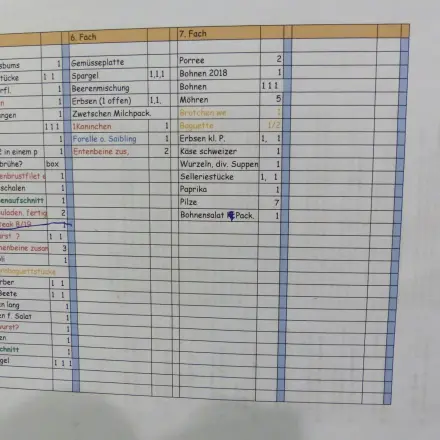 sbums 1
tücke 1 1
rfl. 1
n 1
ngen 1
1 1 1
1
2 in einem p 1
brühe? box
enbrustfilet e 1
schalen 1
enaufschnitt 1
uladen, fertig 2
teak 8/19 1
urst ? 1 1
nenbeine zusar 3
li 1
rber 1 1
Beete 1 1
n lang 1
en f. Salat 1
wurst? 1
en 1
chnitt 1
gel 1 1 1
6. Fach
Gemüseplatte
Spargel 1,1,1
Beerenmischung
Erbsen (1 offen) 1,1,
Zwetschen Milchpack.
1Kaninchen 1
Forelle o. Saibling 1
Entenbeine zus, 2
7. Fach
Porree 2
Bohnen 2018 1
Bohnen 1 1 1
Möhren 5
Brötchen we 1
Baguette 1/2
Erbsen kl. P. 1, 1
Käse schweizer 1
Wurzeln, div. Suppen 1
Selleriestücke 1, 1
Paprika 1
Pilze 7
Bohnensalat Pack. 1